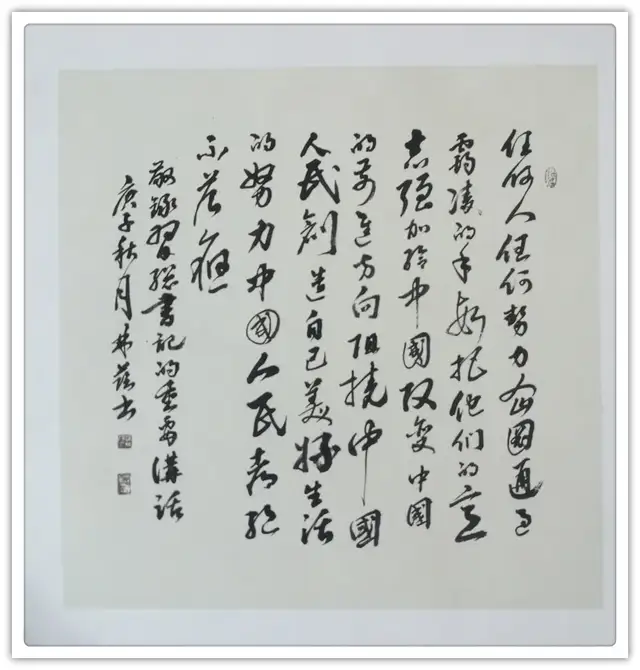 任何人任何勢力企圖通过
霸凌的手段把他们的意
志强加给中國改变中國
的前进方向阻撓中國
人民創造自己美好生活
的努力中國人民都绝
不答应
敬録習總書记的重要講話
庚子秋月